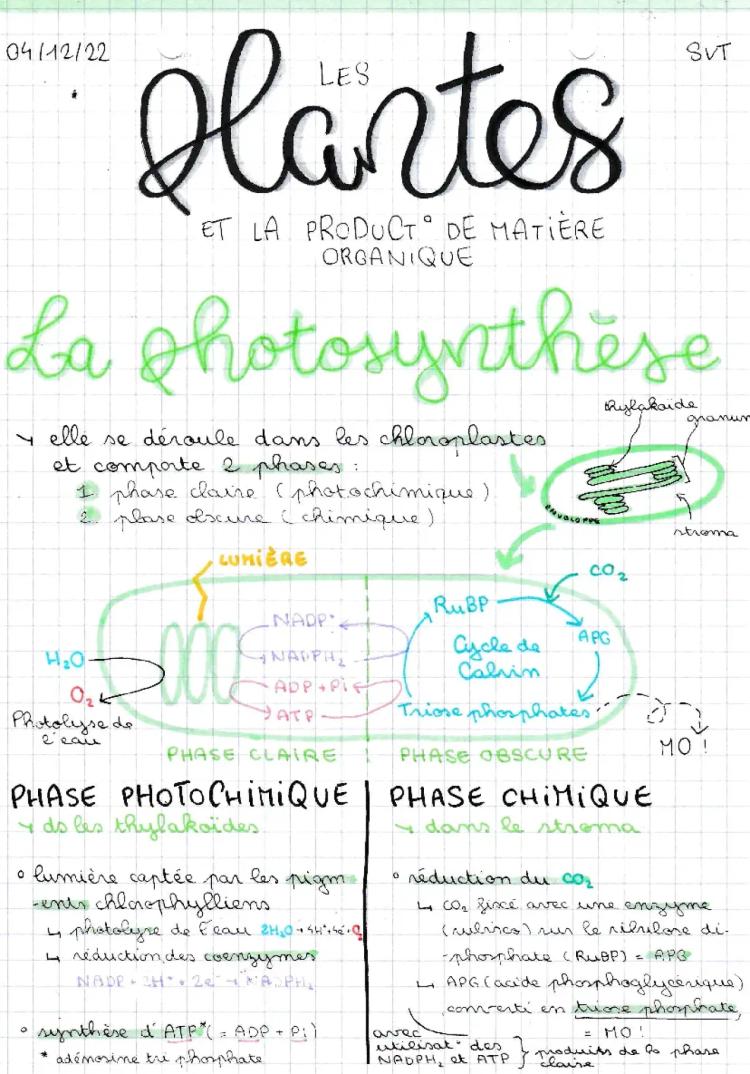 04/12/22
SVT
LES
Plantes
ET LA PRODUCT° DE MATIÈRE
ORGANIQUE
La photosynthèse
elle se déroule dans les chloroplastes
et comporte 2 phases :
1. phase claire (photochimique)
2. phase obscure (chimique)
thylakoïde
granum
ENVELOPPE
stroma
LUMIÈRE
CO₂
H₂O
O₂
Photolyse de
l'eau
NADP⁺
NADPH₂
ADP + Pi
ATP
RuBP
APG
Cycle de
Calvin
Triose phosphates
MO !
PHASE CLAIRE
PHASE OBSCURE
PHASE PHOTOCHIMIQUE
↳ ds les thylakoïdes
° lumière captée par les pigm-
-ents chlorophylliens
↳ photolyse de l'eau 2H₂O → 4H⁺ + 4e⁻ + O₂
↳ réduction des coenzymes
NADP + 2H⁺ + 2e⁻ → NADPH₂
° synthèse d'ATP* (= ADP + Pi)
* adénosine tri phosphate
PHASE CHIMIQUE
↳ dans le stroma
° réduction du CO₂
↳ CO₂ fixé avec une enzyme
(rubisco) sur le ribulose di-
-phosphate (RuBP) = APG
↳ APG (acide phosphoglycérique)
converti en triose phosphate
= MO !
avec
utilisat° des
NADPH₂ et ATP } produits de la phase
claire